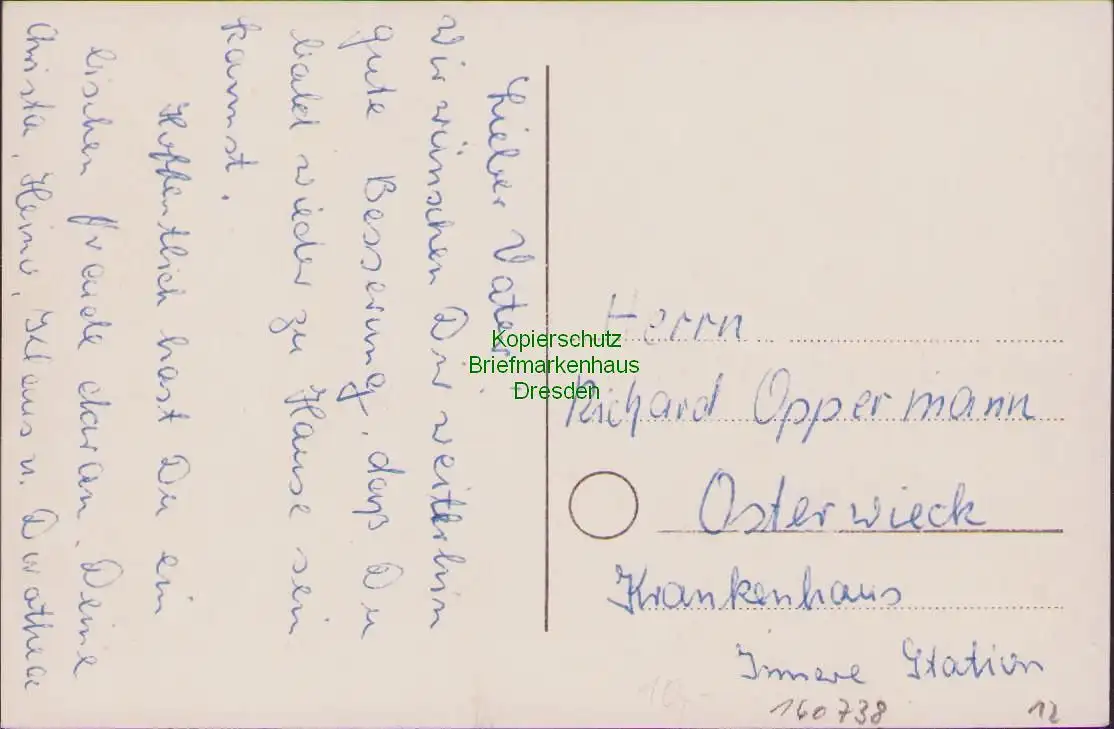 Lieber Vater!
Wir wünschen Dir weiterhin
gute Besserung, daß Du
bald wieder zu Hause sein
kannst.
Hoffentlich hast Du ein
bischen Freude daran. Deine
Christa, Heino, Klaus u. Dorothee
Herrn
Richard Oppermann
Osterwieck
Krankenhaus
Innere Station
160738
12
10,-
Kopierschutz
Briefmarkenhaus
Dresden